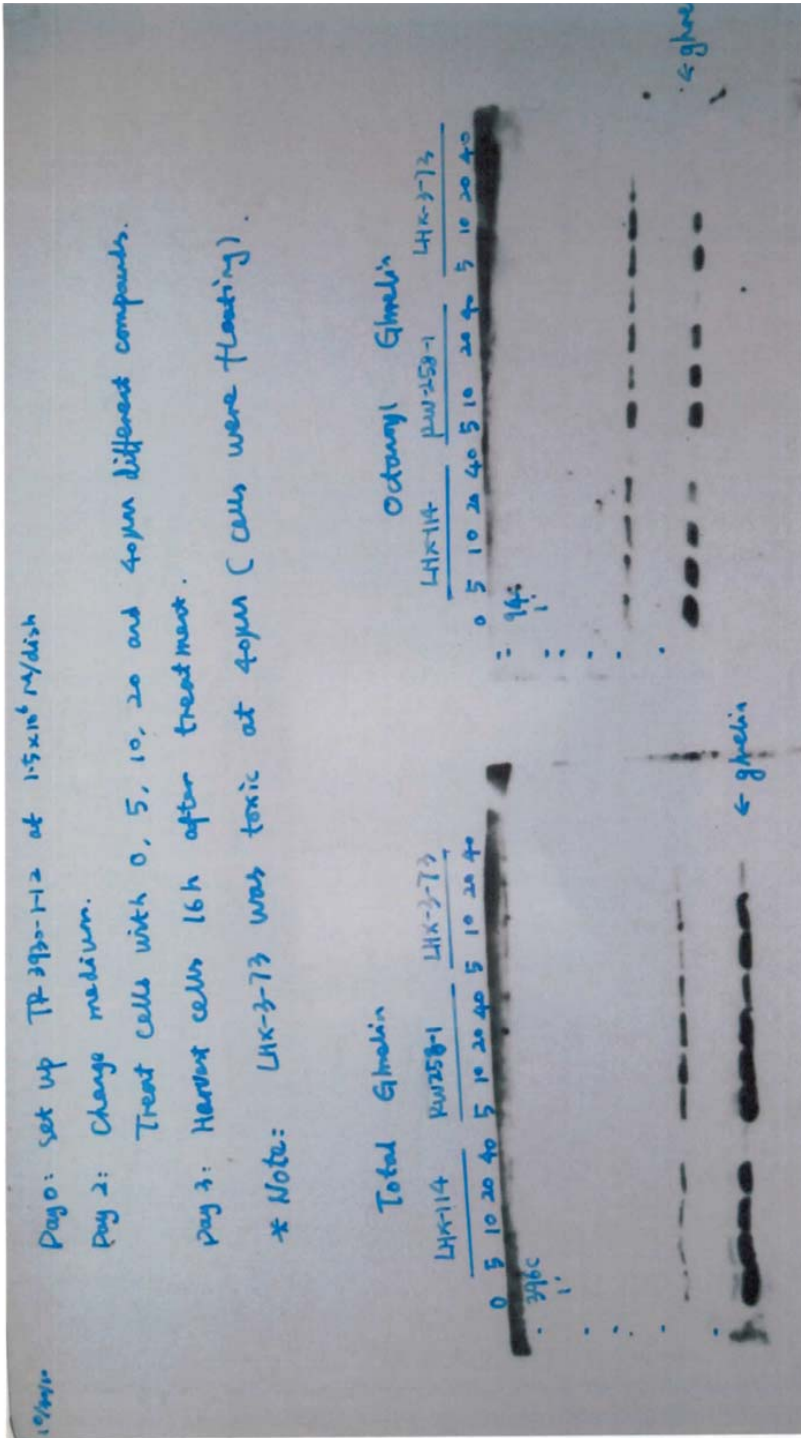 Day 0: Set up TR 3930-1-12 at 1.5x10⁶ /dish
Day 2: Change medium.
Treat cells with 0, 5, 10, 20 and 40μm different compounds.
Day 3: Harvest cells 16h after treatment.
* Note: LHX-3-73 was toxic at 40μm (cells were floating).
Total Ghrelin
LHX-114 RW258-1 LHX-3-73
0 5 10 20 40 5 10 20 40 5 10 20 40
396c
← ghrelin
Octanoyl Ghrelin
LHX-114 RW-258-1 LHX-3-73
0 5 10 20 40 5 10 20 40 5 10 20 40
94:
← ghre